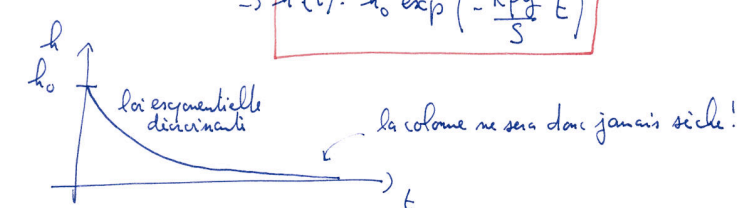 → h(t) = h₀ exp (- kρg/S t)
h
h₀
loi exponentielle
décroissante
la colonne ne sera donc jamais sèche!
t